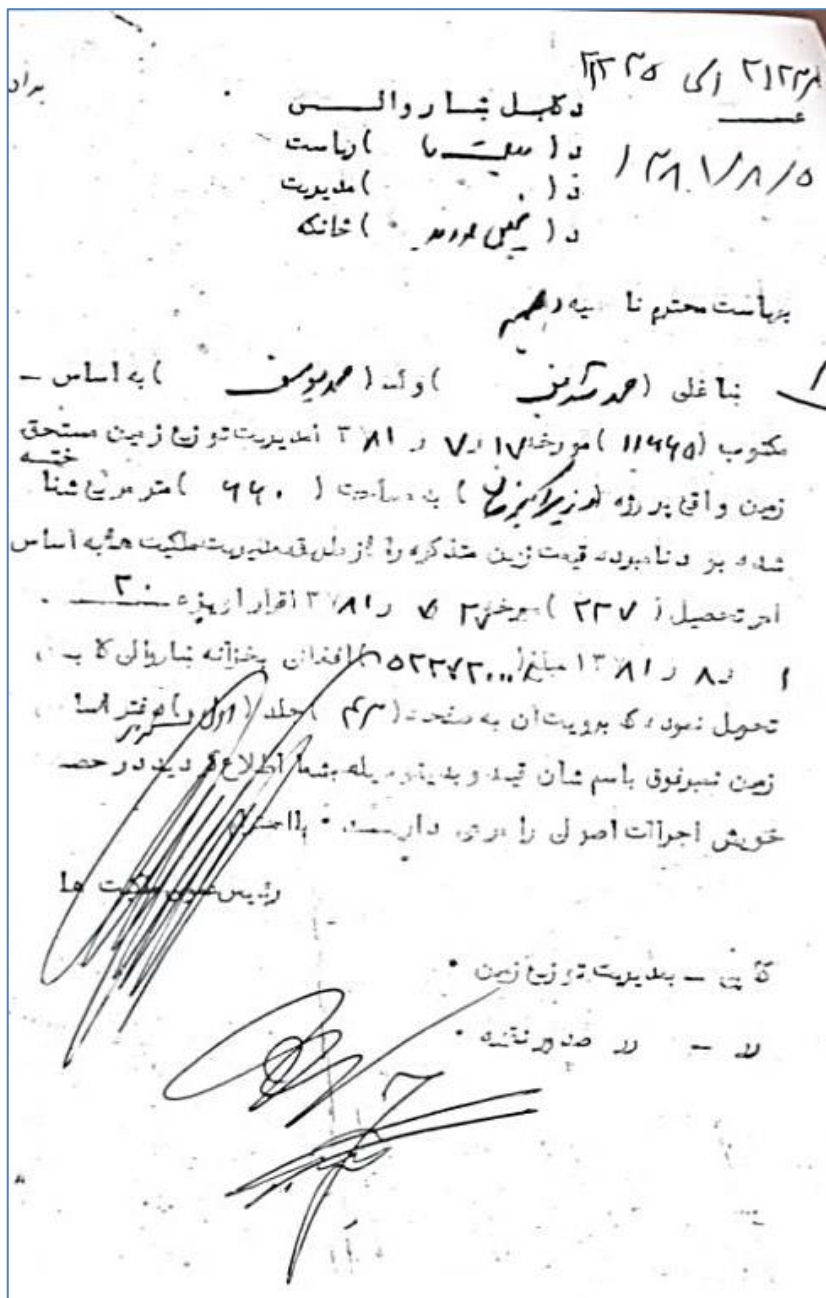 ۲۱۲۳ الی ۲۱۲۲۵
۱۳۸۱/۸/۵
دکابل ښاروالــی
د ( ملکیت ها ) ریاست
د ( ) مدیریت
د ( ) څانګه
بریاست محترم ناحیه دهم
ښاغلی ( محمد شریف ) ولد ( محمد یوسف ) به اساس –
مکتوب (۱۱۶۶۵) مورخه ۱۷ ر ۷ ر ۱۳۸۱ مدیریت توزیع زمین مستحق
زمین واقع پروژه ( وزیر اکبر خان ) به مساحت ( ۶۶۰ ) متر مربع شناخته
شده بودنامبرده قیمت زمین متذکره را از طریق مدیریت ملکیت ها به اساس
امر تحصیل ( ۲۲۷ ) مورخه ۲۷ ر ۱۳۸۱ قرار آویز ۲۰
ر ۸ ر ۱۳۸۱ مبلغ ( ) افغانی بخزانه ښاروالی کابل
تحویل نموده که برویت آن به صفحه (۴۳) جلد (اول) دفتر اساس
زمین نمبر فوق باسم شان قید و بدینوسیله بشما اطلاع گردید در حصه
خویش اجراات اصولی را مرعی دارند • بااحترام
رئیس عمومی ملکیت ها
کاپی – بمدیریت توزیع زمین •
رر – رر •